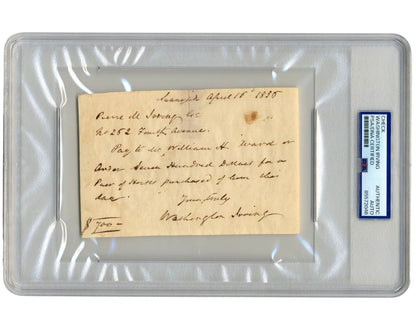 April 16 1835
Pierre M Irving Esq
No 262 Fourth Avenue.
Pay to Mr William H. Ward or
order Seven Hundred Dollars for a
Pair of Horses purchased of him this
day.
Yours truly
Washington Irving
$ 700 -
CHECK
WASHINGTON IRVING
PSA/DNA CERTIFIED
AUTHENTIC
AUTO
PSA